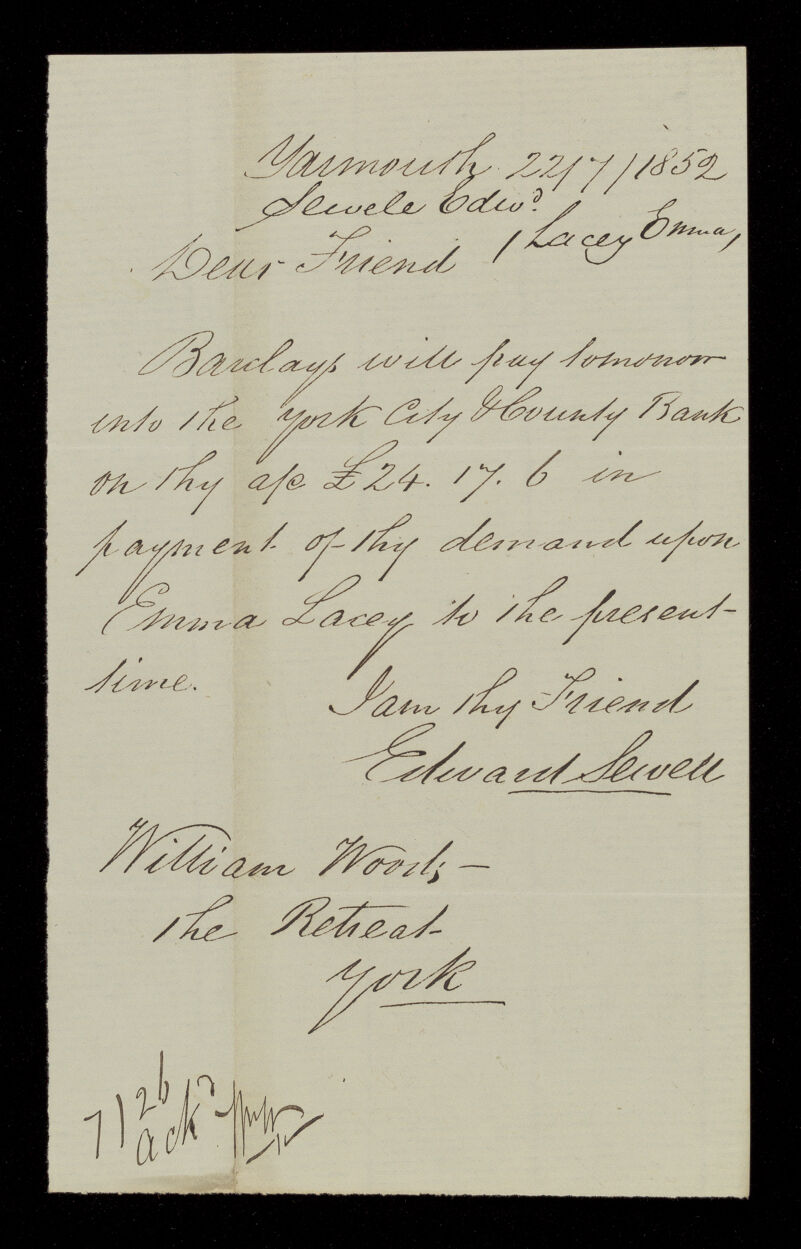 Yarmouth 22/7/1852
Sewell Edwd.
(Lacey Emma,
Dear Friend
Barclays will pay tomorrow
into the York City & County Bank
on thy a/c £24. 17. 6 in
payment of thy demand upon
Emma Lacey to the present
time.
I am thy Friend
Edward Sewell
William Woods –
the Retreat
York
7/26
ackd